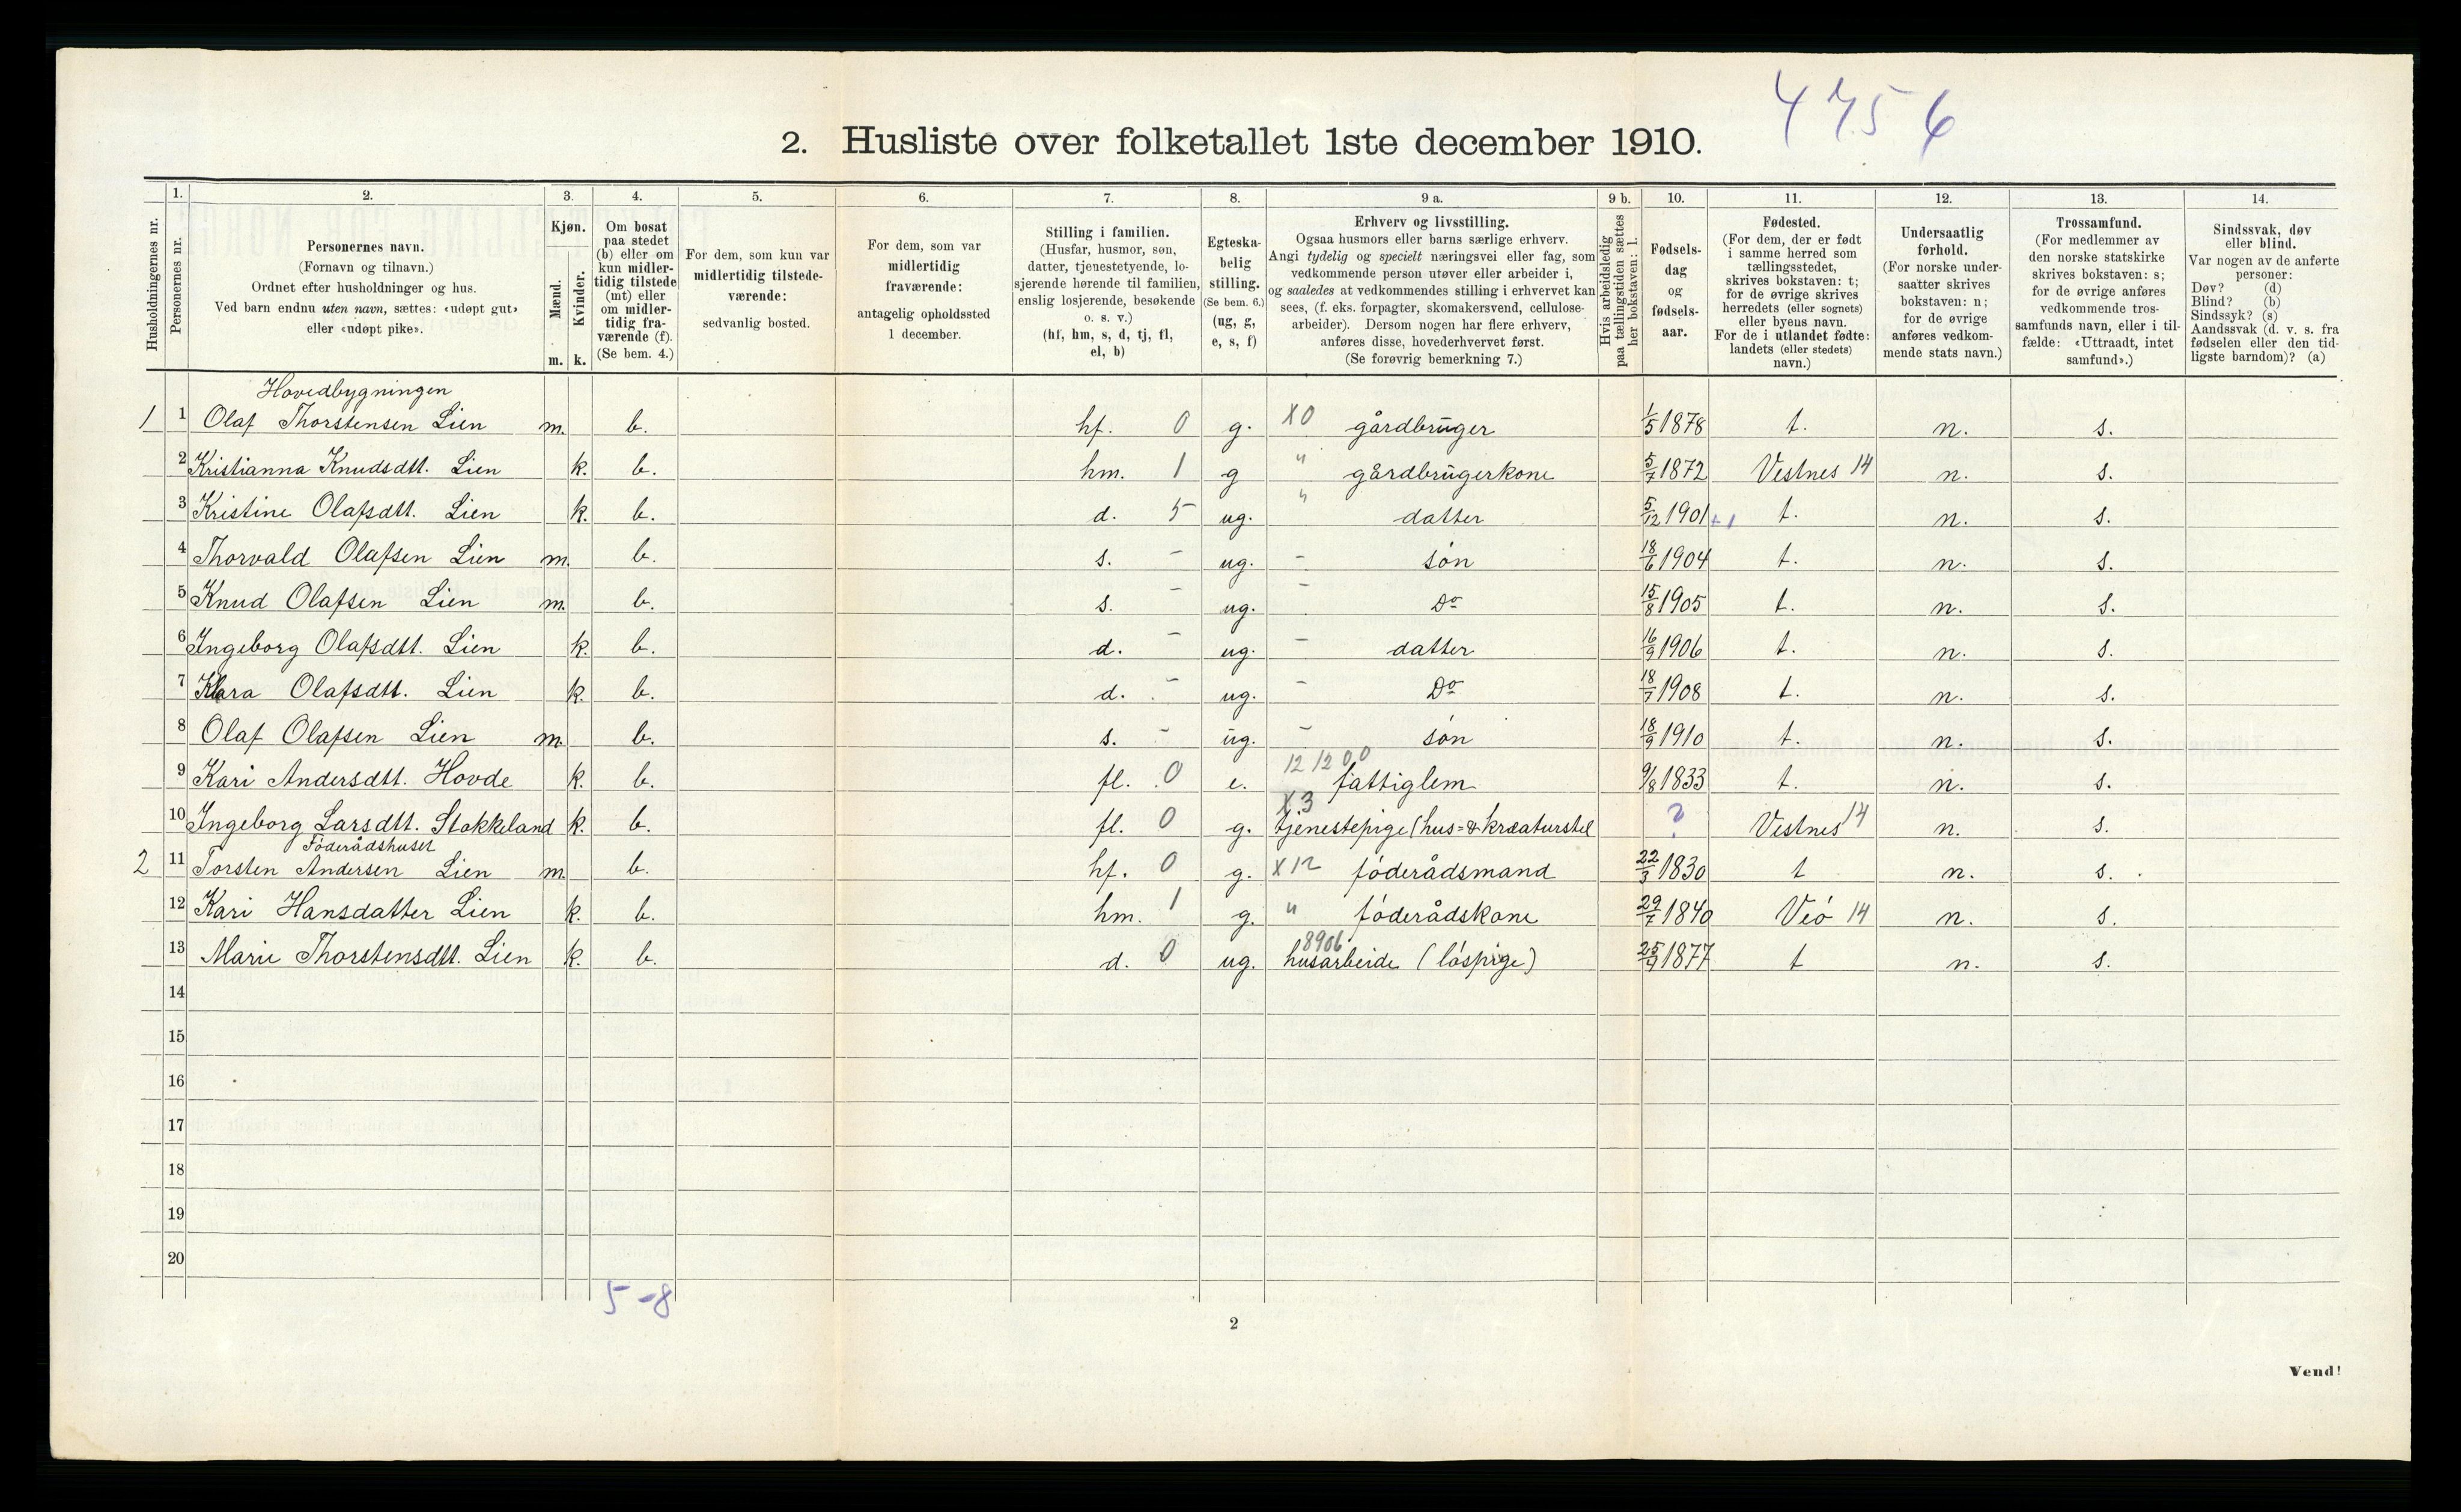 4756
2. Husliste over folketallet 1ste december 1910.
Husholdningernes nr.
1. Personernes nr.
2. Personernes navn. (Fornavn og tilnavn.) Ordnet efter husholdninger og hus. Ved barn endnu uten navn, sættes: «udøpt gut» eller «udøpt pike».
3. Kjøn. Mænd. m. Kvinder. k.
4. Om bosat paa stedet (b) eller om kun midlertidig tilstede (mt) eller om midlertidig fraværende (f). (Se bem. 4.)
5. For dem, som kun var midlertidig tilstedeværende: sedvanlig bosted.
6. For dem, som var midlertidig fraværende: antagelig opholdssted 1 december.
7. Stilling i familien. (Husfar, husmor, søn, datter, tjenestetyende, losjerende hørende til familien, enslig losjerende, besøkende o. s. v.) (hf, hm, s, d, tj, fl, el, b)
8. Egteskabelig stilling. (Se bem. 6.) (ug, g, e, s, f)
9 a. Erhverv og livsstilling. Ogsaa husmors eller barns særlige erhverv. Angi tydelig og specielt næringsvei eller fag, som vedkommende person utøver eller arbeider i, og saaledes at vedkommendes stilling i erhvervet kan sees, (f. eks. forpagter, skomakersvend, cellulosearbeider). Dersom nogen har flere erhverv, anføres disse, hovederhvervet først. (Se forøvrig bemerkning 7.)
9 b. Hvis arbeidsledig paa tællingstiden sættes her bokstaven: l.
10. Fødselsdag og fødselsaar.
11. Fødested. (For dem, der er født i samme herred som tællingsstedet, skrives bokstaven: t; for de øvrige skrives herredets (eller sognets) eller byens navn. For de i utlandet fødte: landets (eller stedets) navn.)
12. Undersaatlig forhold. (For norske undersaatter skrives bokstaven: n; for de øvrige anføres vedkommende stats navn.)
13. Trossamfund. (For medlemmer av den norske statskirke skrives bokstaven: s; for de øvrige anføres vedkommende trossamfunds navn, eller i tilfælde: «Uttraadt, intet samfund».)
14. Sindssvak, døv eller blind. Var nogen av de anførte personer: Døv? (d) Blind? (b) Sindssyk? (s) Aandssvak (d. v. s. fra fødselen eller den tidligste barndom)? (a)
Hovedbygningen
1 1 Olaf Thorstensen Lien m. b. hf. 0 g. X0 gårdbruger 1/5 1878 t. n. s.
2 Kristianna Knudsdtt. Lien k. b. hm. 1 g " gårdbrugerkone 5/7 1872 Vestnes 14 n. s.
3 Kristine Olafsdtt. Lien k. b. d. 5 ug. " datter 5/12 1901 +1 t. n. s.
4 Thorvald Olafsen Lien m. b. s. - ug. - søn 18/6 1904 t. n. s.
5 Knud Olafsen Lien m. b. s. - ug. - Do 15/8 1905 t. n. s.
6 Ingeborg Olafsdtt. Lien k. b. d. - ug. - datter 16/9 1906 t. n. s.
7 Klara Olafsdtt. Lien k. b. d. - ug. - Do 18/7 1908 t. n. s.
8 Olaf Olafsen Lien m. b. s. - ug. - søn 18/9 1910 t. n. s.
9 Kari Andersdtt. Hovde k. b. fl. 0 e. 12 12 00 fattiglem 9/8 1833 t. n. s.
10 Ingeborg Larsdtt. Stokkeland k. b. fl. 0 g. X3 tjenestepige (hus= & kreaturstel ? Vestnes 14 n. s.
Föderådshuset
2 11 Torsten Andersen Lien m. b. hf. 0 g. X12 föderådsmand 22/3 1830 t n. s.
12 Kari Hansdatter Lien k. b. hm. 1 g. " föderådskone 29/7 1840 Veö 14 n. s.
13 Marie Thorstensdtt. Lien k. b. d. 0 ug. 8906 husarbeide (löspige) 25/9 1877 t n. s.
14
15
16
17
18
19
20
5-8
2
Vend!